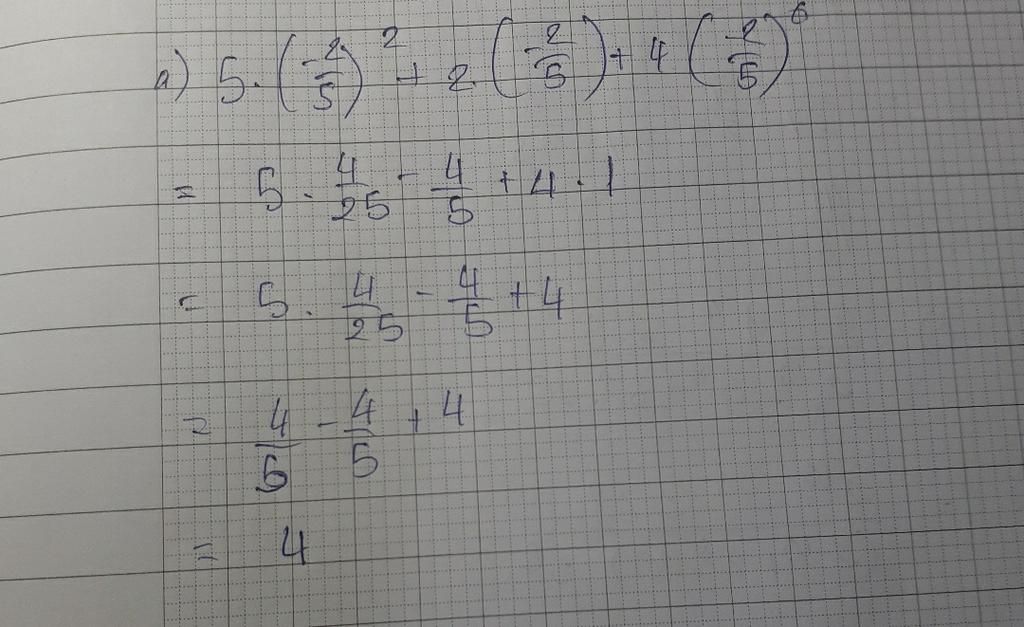 a) 5 · (-2/5)² + 2 · (-2/5) + 4 (-2/5)⁶
= 5 · 4/25 - 4/5 + 4 · 1
= 5 · 4/25 - 4/5 + 4
= 4/5 - 4/5 + 4
= 4